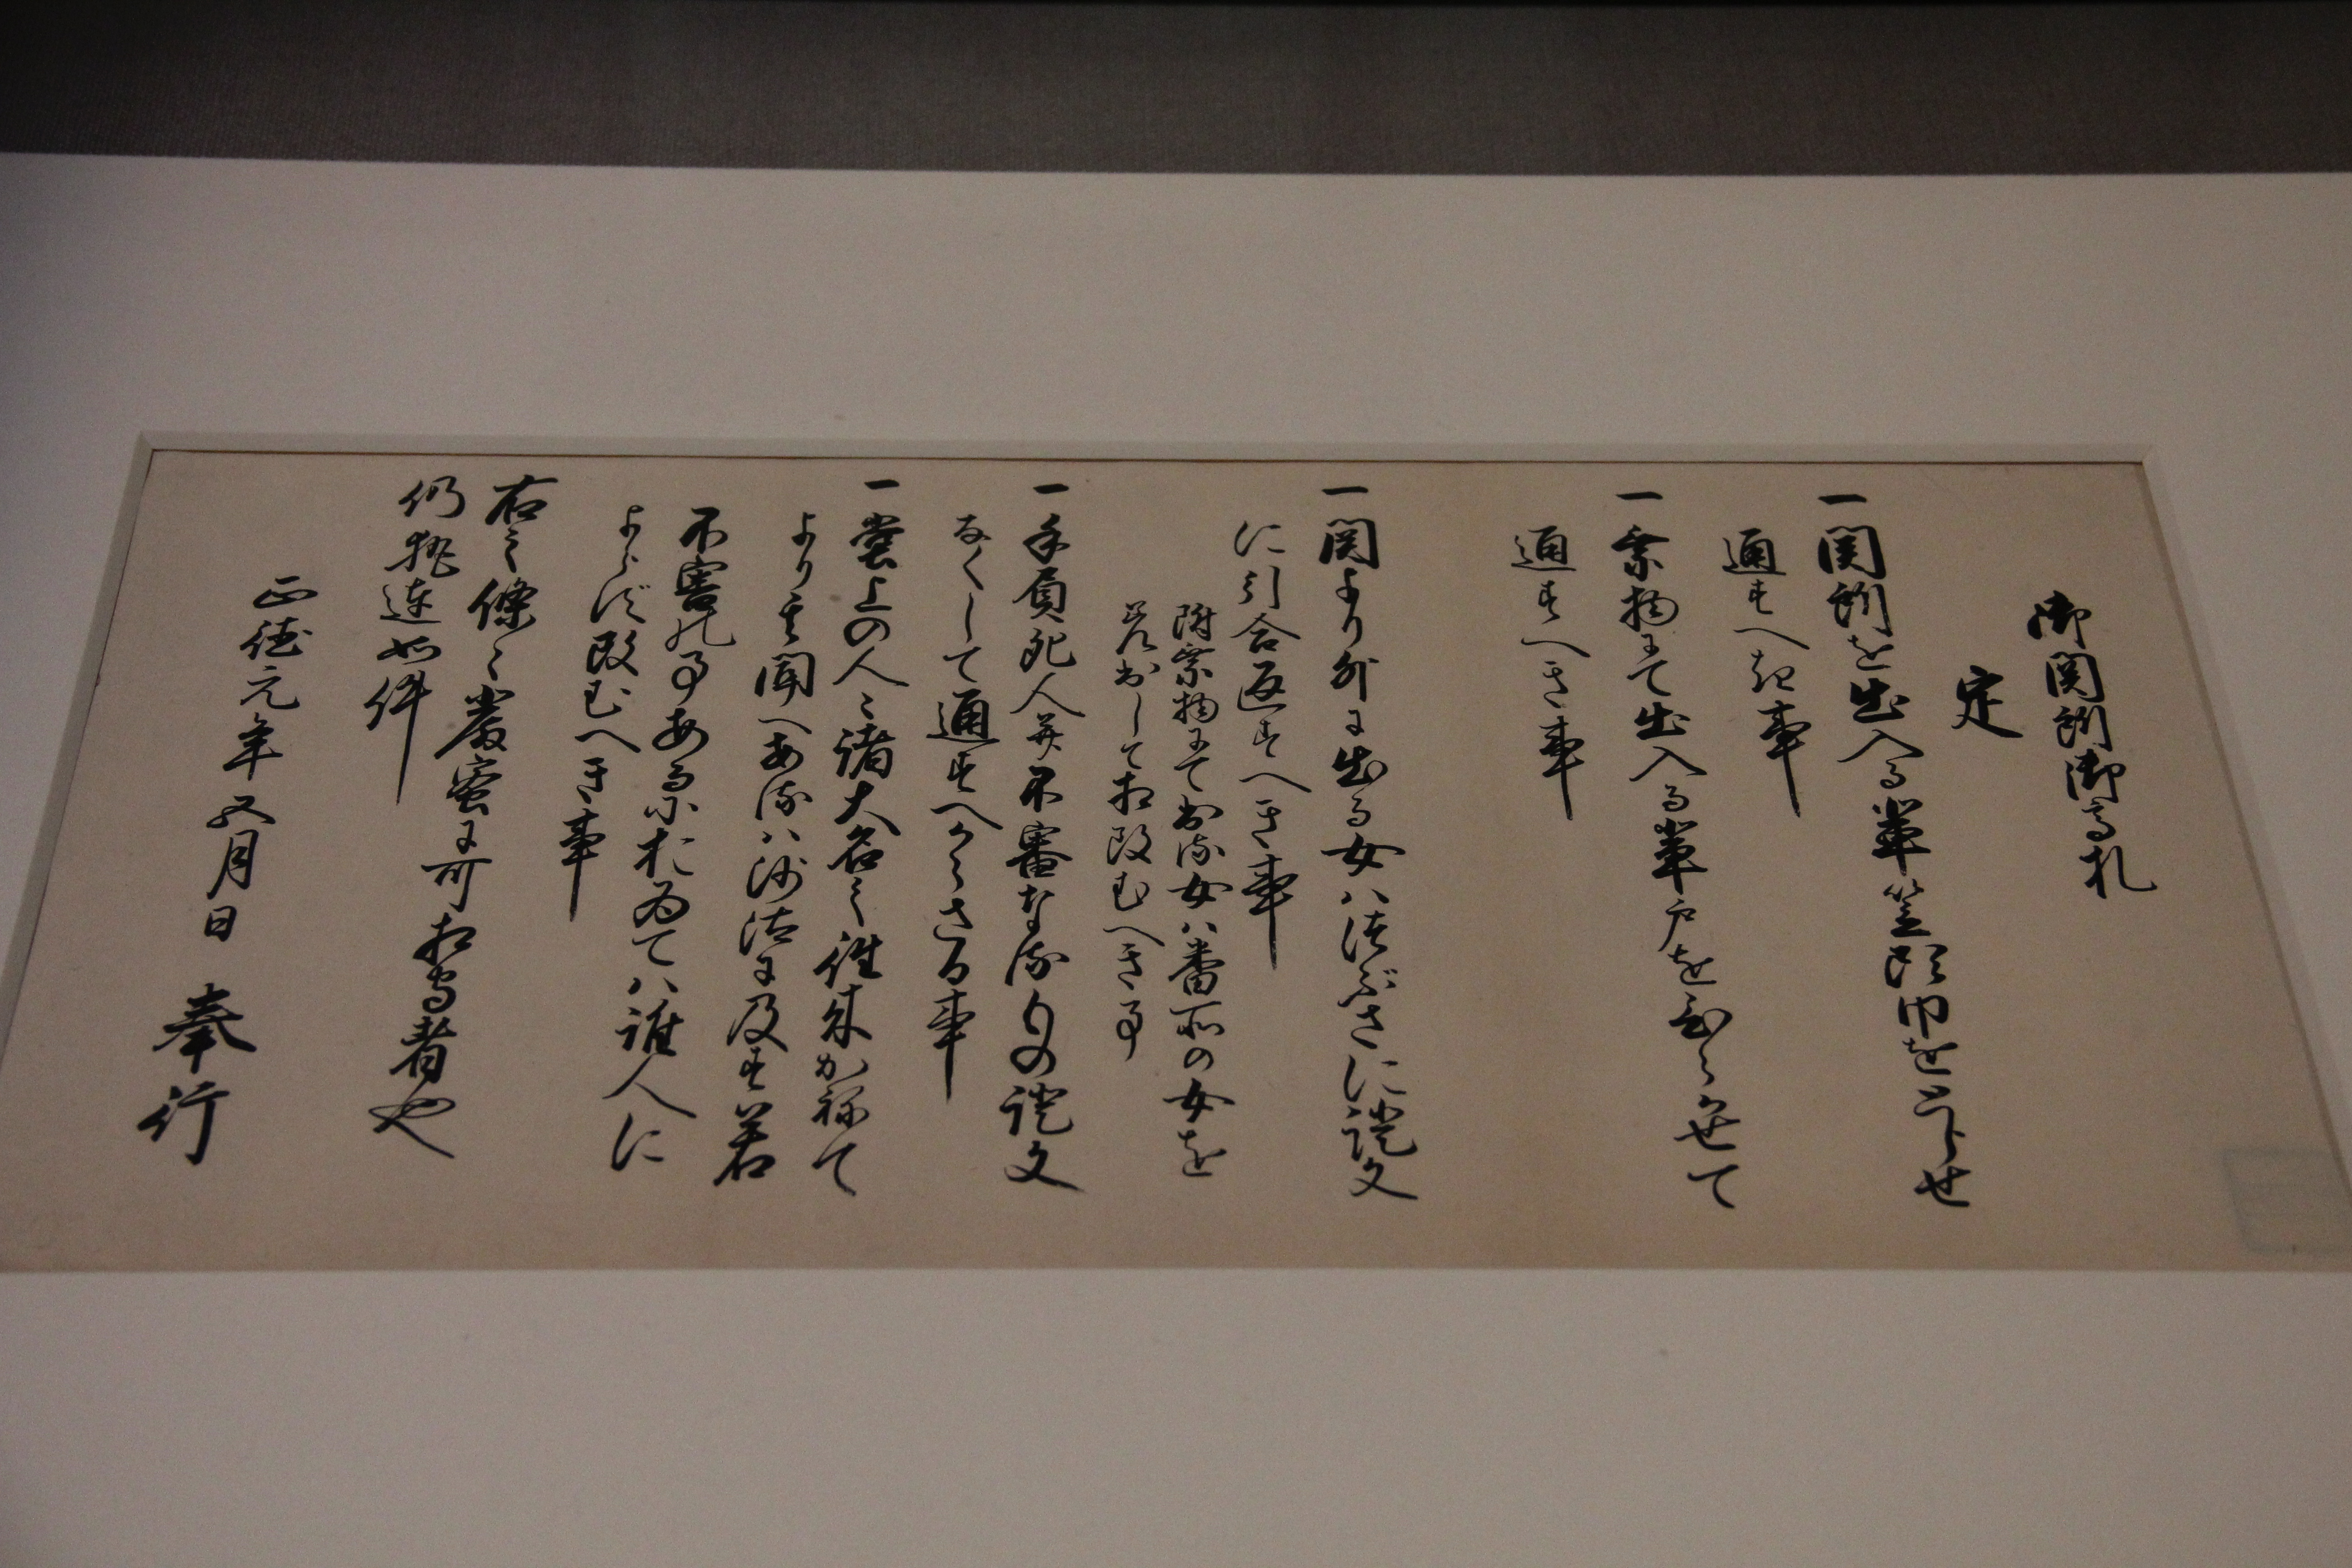 御関所御高札
定
一関所を出入る輩笠頭巾をとらせ
通すへき事
一乗物にて出入る輩戸をひらかせて
通すへき事
一関より外に出る女ハつぶさに證文
に引合返すへき事
附乗物にて出る女ハ番所の女を
差出して相改むへき事
一手負死人并不審なるもの證文
なくして通すへからさる事
一堂上の人々諸大名之往来かねて
より其聞へあるハ沙汰に及す若
不審の事あるに於ゐてハ誰人に
よらす改むへき事
右之條々厳蜜に可相守者也
仍執達如件
正徳元年五月日 奉行